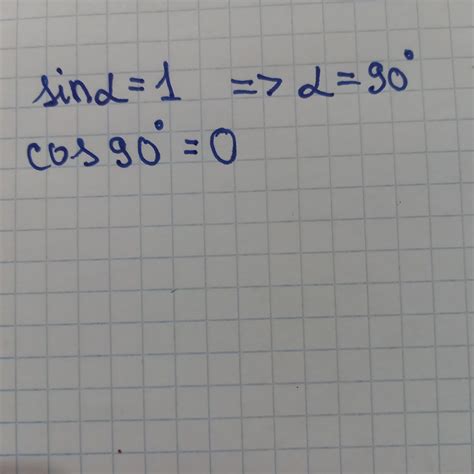 sinα=1 => α=90°
cos 90°=0